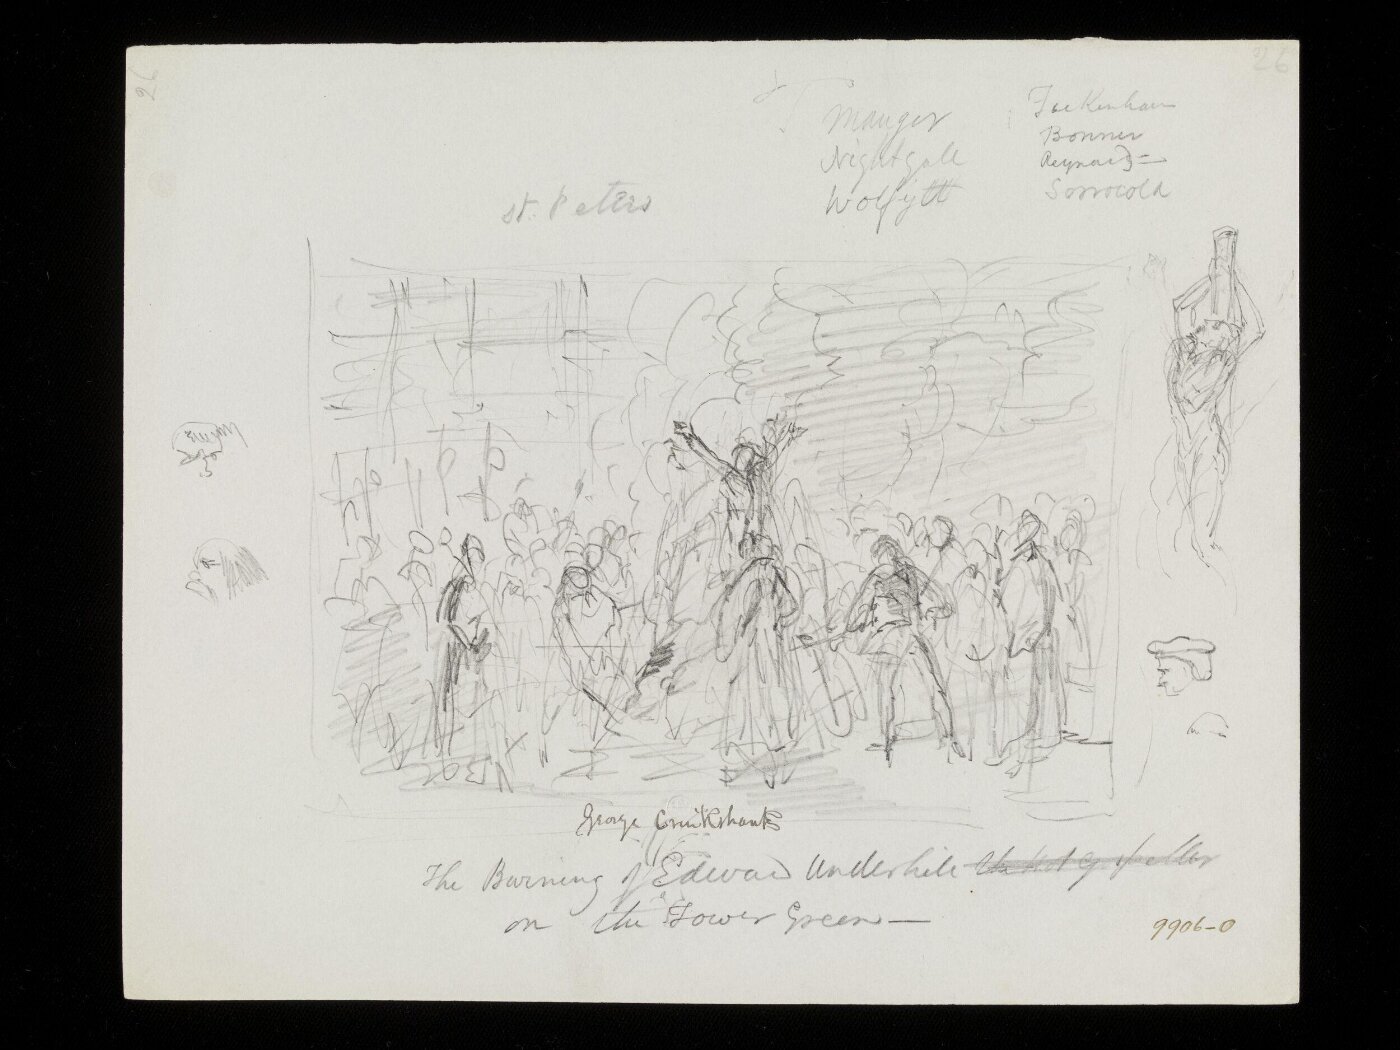 26
26
Mauger
Nightgale
Wolfytt
Feckenham
Bonner
Reynard =
Sorrocold
St. Peters
George Cruikshank
The Burning of Edward Underhile the hot gospeller
on the Tower Green —
9906-0